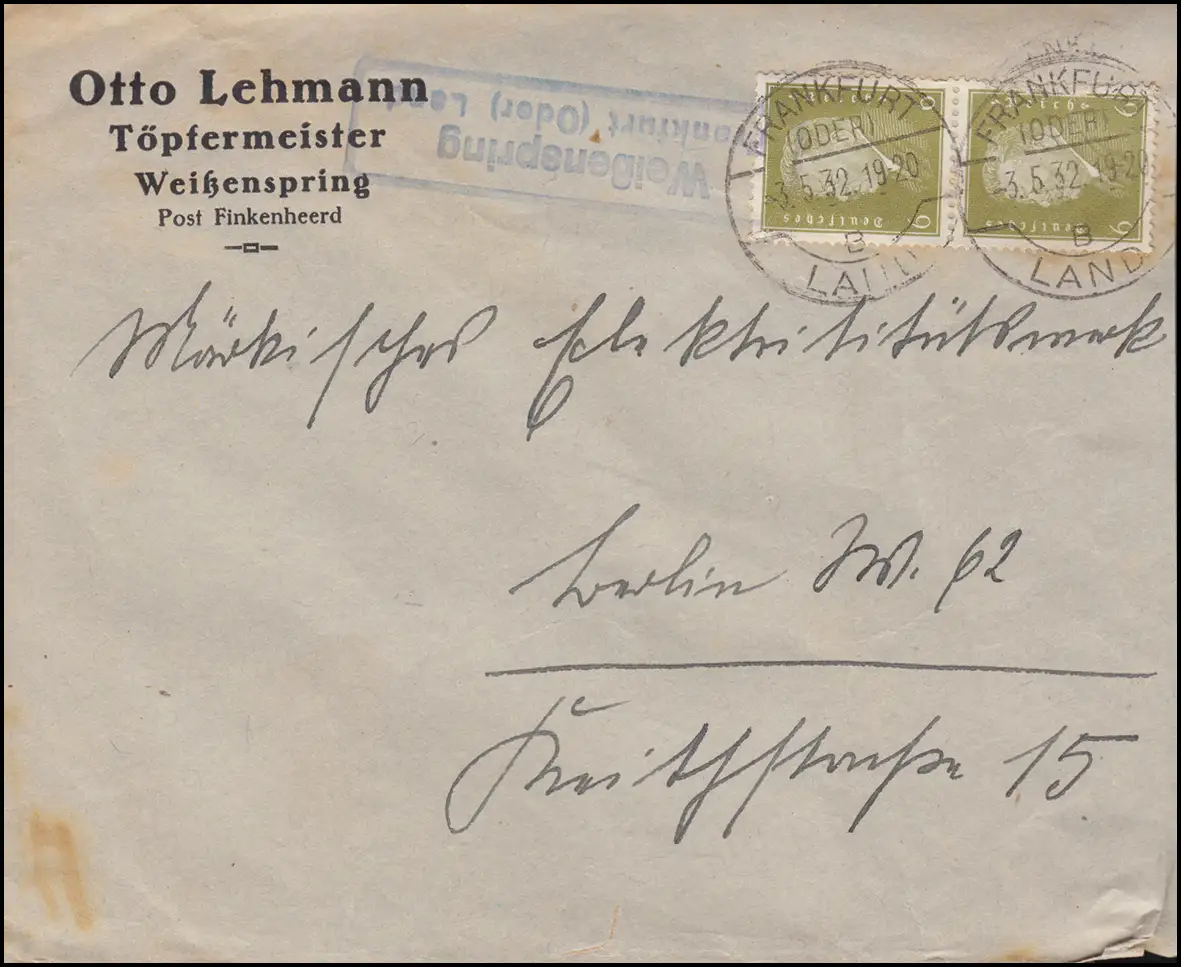 Otto Lehmann
Töpfermeister
Weißenspring
Post Finkenheerd
Weißenspring
Frankfurt (Oder) Land
FRANKFURT
(ODER)
-3.5.32.19-20
B
LAND
FRANKFURT
(ODER)
-3.5.32.19-20
B
LAND
6 Deutsches
6 Deutsches
Märkisches Elektrititätswerk
Berlin W. 62
Keithstraße 15